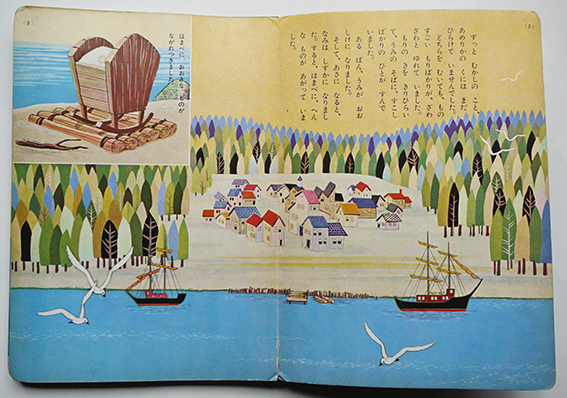 (2)
ずっと むかしの こと、
あめりかの くには まだ
ひらけて いませんでした。
どちらを むいても、もの
すごい もりばかりが、ざわ
ざわと ゆれて いました。
もりの きを きりひらい
て、うみの そばに、すこし
ばかりの ひとが すんで
いました。
ある ばん、うみが おお
しけに なりました。
そして、あさに なると、
なみは しずかに なりまし
た。すると、はまべに、へん
な ものが あがって いま
した。
(3)
はまべに、おおきな ものが
ながれつきました。